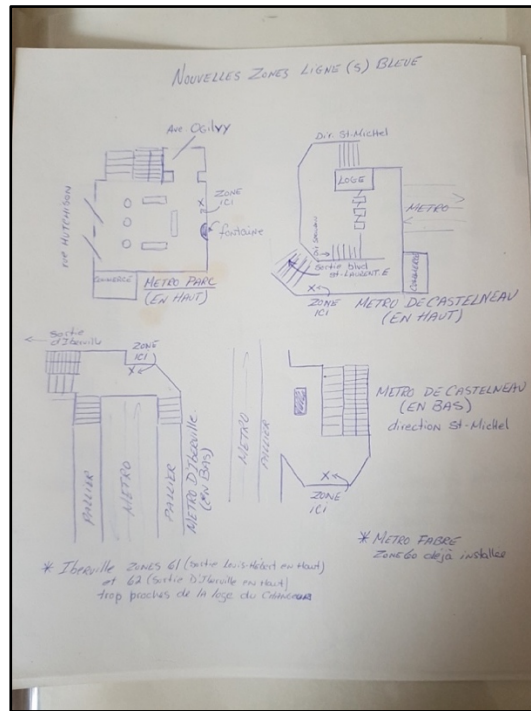 NOUVELLES ZONES LIGNE(S) BLEUE
AVE OGILVY
RUE HUTCHISON
ZONE
ICI
X
fontaine
COMMERCE
METRO PARC
(EN HAUT)
Dir. St-Michel
LOGE
METRO
sortie blvd
St-LAURENT.E
COMMERCE
X
ZONE
ICI
METRO DE CASTELNEAU
(EN HAUT)
sortie
d'Iberville
ZONE
ICI
X
PALLIER
METRO
PALLIER
METRO D'IBERVILLE
(EN BAS)
METRO
PALLIER
X
ZONE
ICI
METRO DE CASTELNEAU
(EN BAS)
direction St-Michel
* METRO FABRE
ZONE 60 déjà installée
* Iberville ZONES 61 (sortie Louis-Hébert en Haut)
et 62 (sortie D'Iberville en Haut)
trop proches de la loge du